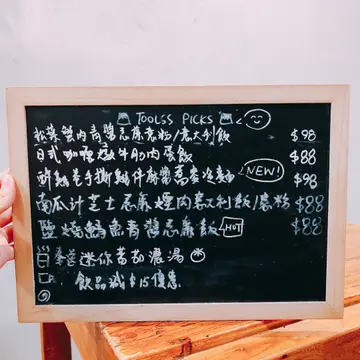 TOOLSS PICKS
松葉蟹肉青醬忌廉意粉/意大利飯 $98
日式咖喱炆牛肋肉飯 $88
醉鮑卷手撕雞伴麻醬蕎麥冷麵 NEW! $98
南瓜汁芝士忌廉煙肉意大利飯/意粉 $88
鹽燒鯖魚青醬忌廉飯 HOT $88
送迷你蕃茄濃湯
飲品減$15優惠